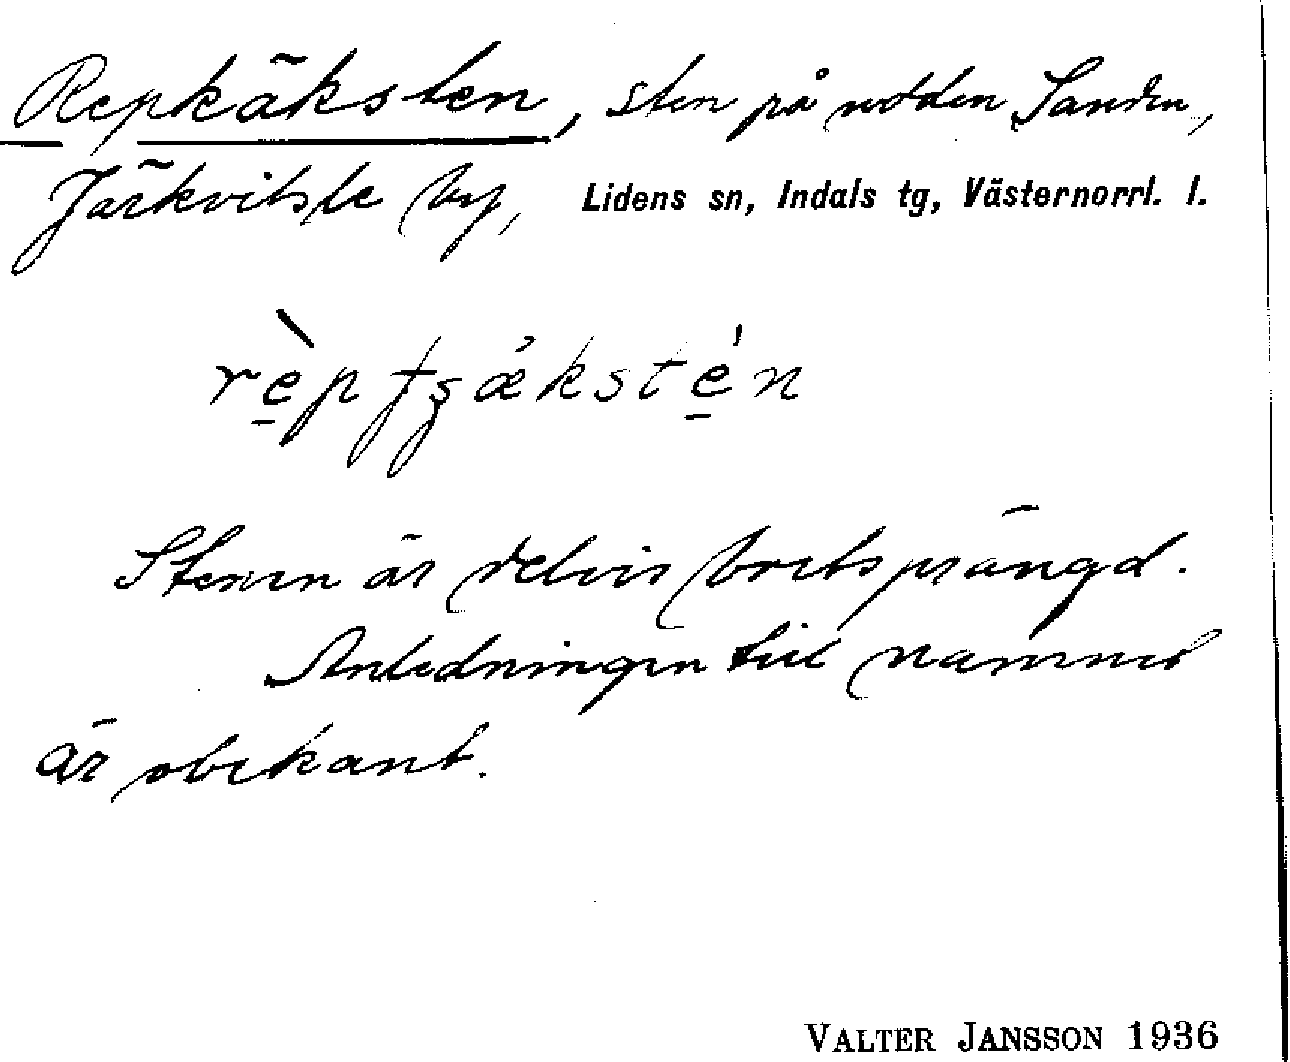 Repkäksten, sten på udden Sanden,
Järkvitsle by, Lidens sn, Indals tg, Västernorrl. l.
rèptʂǽkstén
Stenen är delvis bortsprängd.
Anledningen till namnet
är obekant.
VALTER JANSSON 1936